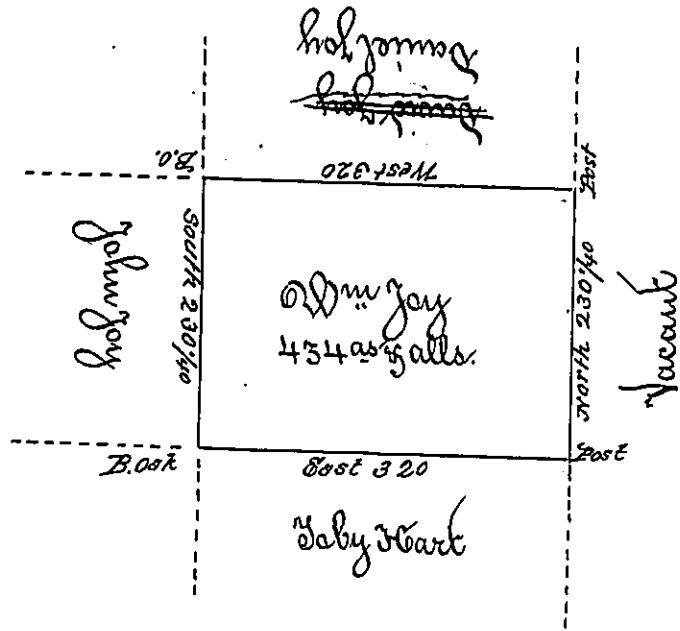 Daniel Joy
B.O.
West 320
Post
John Joy
South 230 1/40
Wm Joy
434 as & alls.
North 230 1/40
Vacant
B. Oak
East 320
Post
Toby Hart